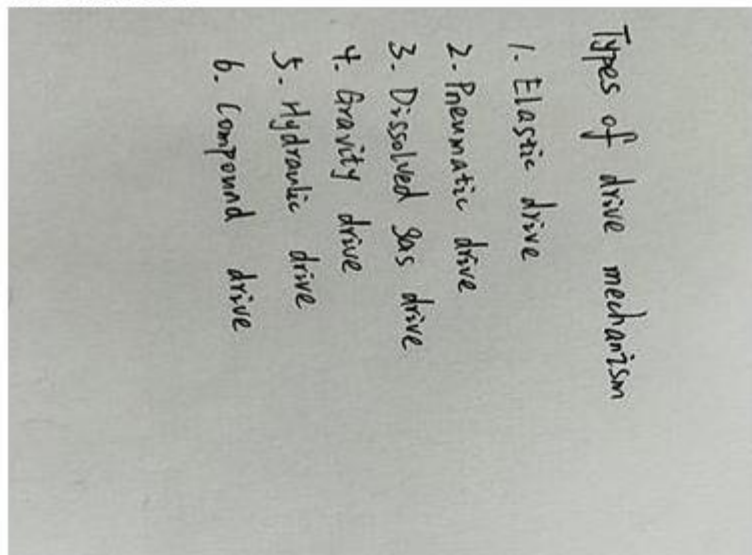 Types of drive mechanism
1. Elastic drive
2. Pneumatic drive
3. Dissolved gas drive
4. Gravity drive
5. Hydraulic drive
6. Compound drive